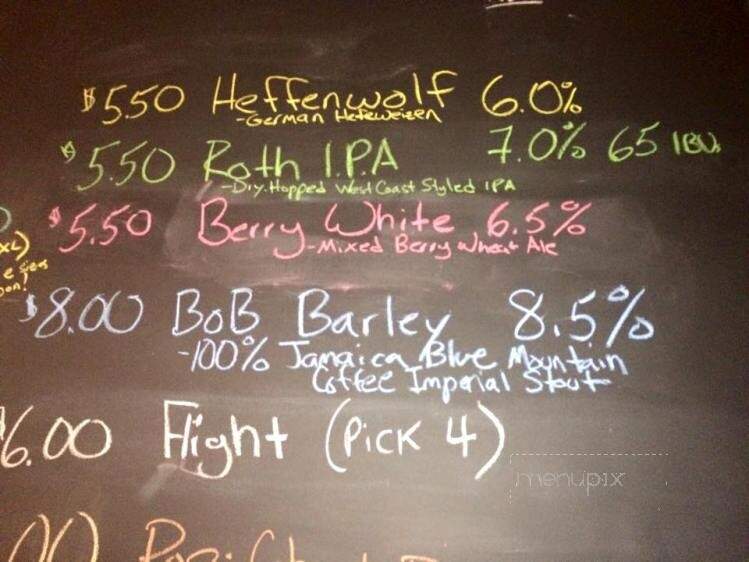 $5.50 Heffenwolf 6.0%
-German Hefeweizen
$5.50 Roth I.P.A 7.0% 65 IBU
-Dry-Hopped West Coast Styled IPA
$5.50 Berry White 6.5%
-Mixed Berry Wheat Ale
XL)
$8.00 BoB Barley 8.5%
-100% Jamaica Blue Mountain
Coffee Imperial Stout
$6.00 Flight (Pick 4)
menupix